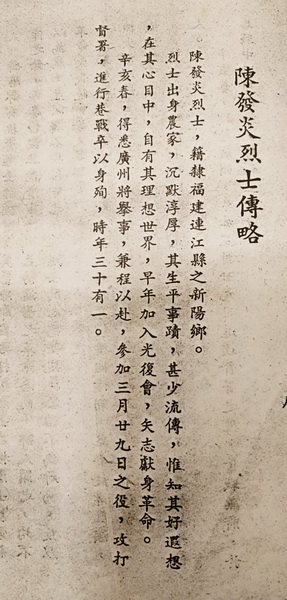 陳發炎烈士傳略
陳發炎烈士，籍隸福建連江縣之新陽鄉。
烈士出身農家，沉默淳厚，其生平事蹟，甚少流傳，惟知其好遐想
，在其心目中，自有其理想世界，早年加入光復會，矢志獻身革命。
辛亥春，得悉廣州將舉事，兼程以赴，參加三月廿九日之役，攻打
督署，進行巷戰卒以身殉，時年三十有一。